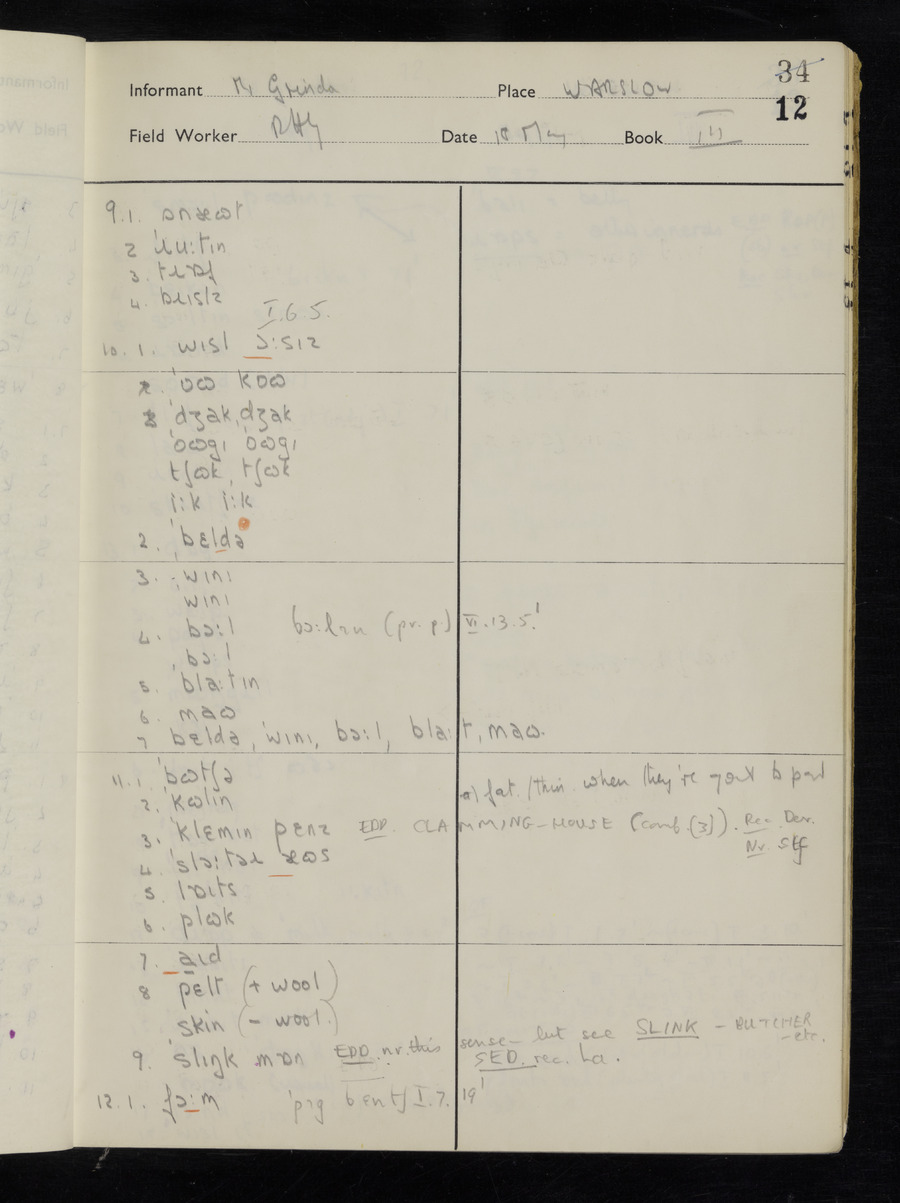 34
Informant Mr Grindа Place WARSLOW
12
Field Worker RHG Date 18 May Book III
9.1. ɒnæɷt
2 ˈɹuːtin
3. tɛɒf
4. bɹɪslz
I.6.5.
10.1. wɪsl ɔːsɪz
ˈɒɷ kɒɷ
ˈdʒak, dʒak
ˈɒɷgɪ ˈɒɷgɪ
tʃɷk, tʃɷk
iːk iːk
2. ˈbɛldə
3. ˈwɪnɪ
wɪnɪ
4. bɔːl bɔːlɪn (pr. p.) VI.13.5.
bɔːl
5. blaːtɪn
6. maɷ
7 bɛldə, ˈwɪnɪ, bɔːl, blaːt, maɷ.
11.1. ˈbɷtʃə a) fat /thin when they're
2. ˈkɷlɪn
3. ˈklemɪn penz EDD. CLAMMING-HOUSE (conf. [3]). Rec. Der.
Nr. Stf
4. ˈslɔːtəɹ æɷs
5. lɒɪts
6. plɷk
7. aɪd
8 pɛlt (+ wool)
skin (- wool.)
9. ˈslɪŋk mɒn EDD. nr. this sense - but see SLINK - BUTCHER - etc.
SED. rec. La.
12.1. fɔːm ˈpɪg bɛntʃ I.7.19